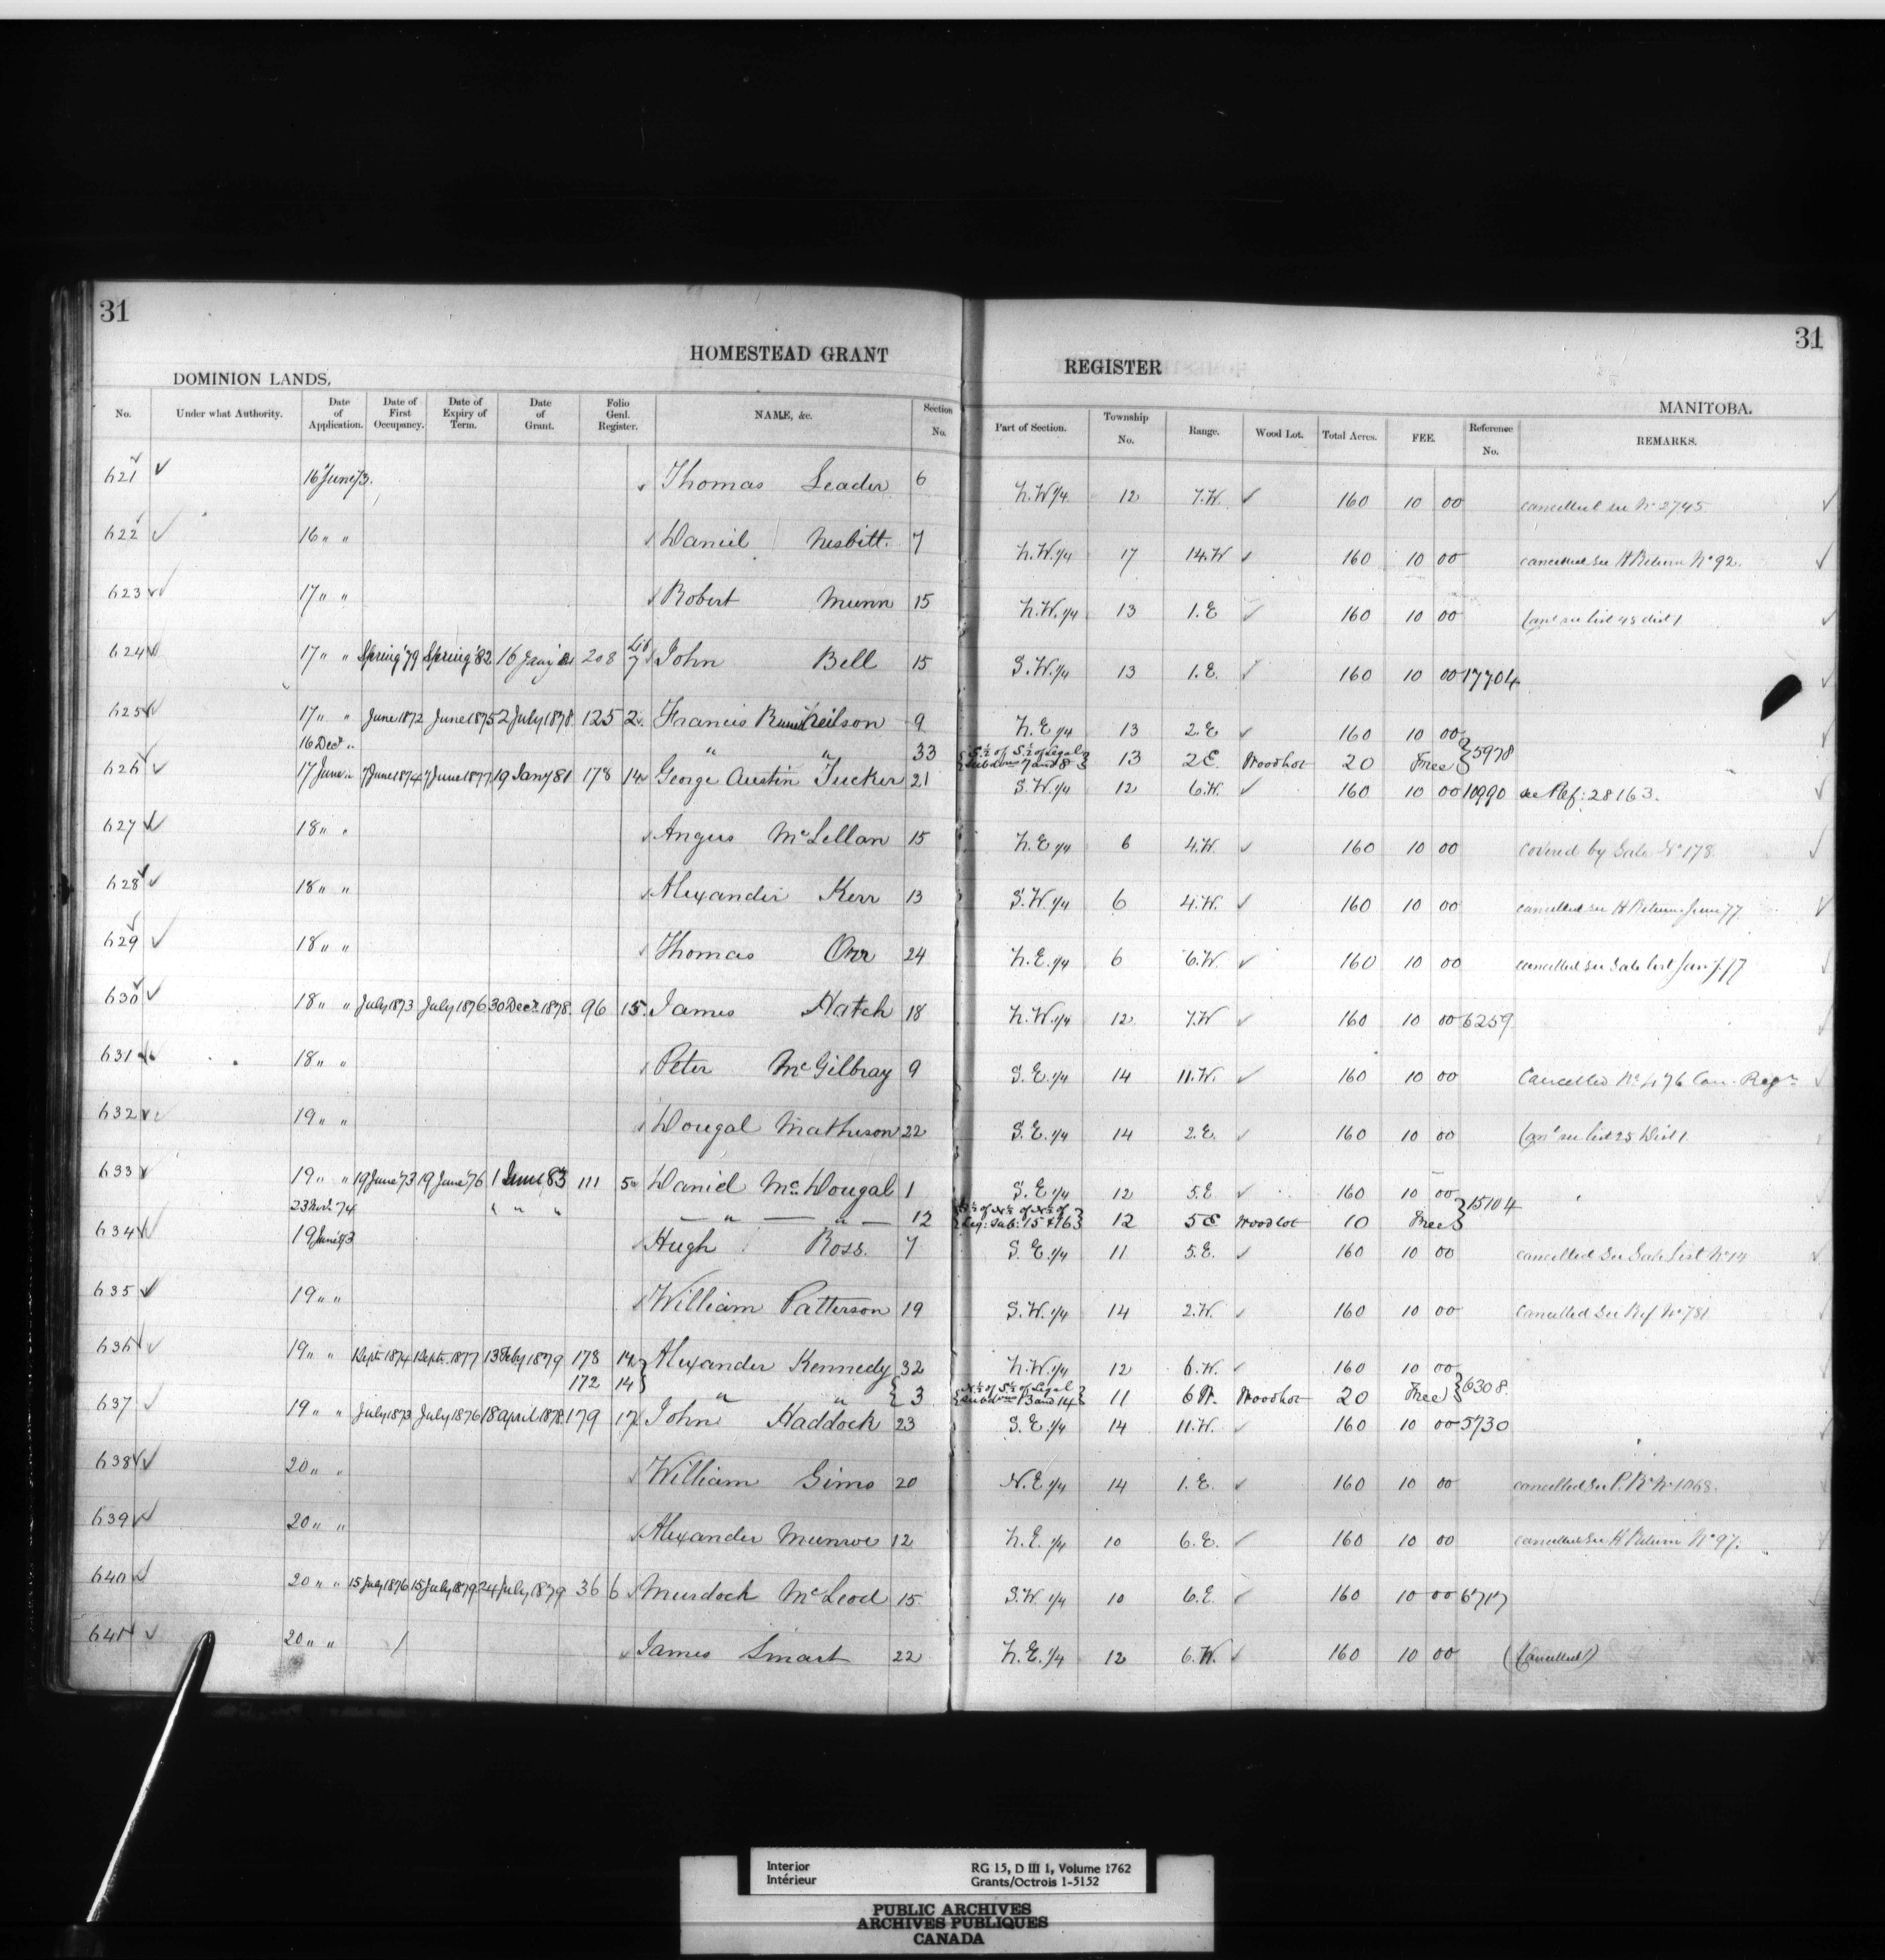 31
31
HOMESTEAD GRANT REGISTER
DOMINION LANDS,
MANITOBA.
No. Under what Authority. Date of Application. Date of First Occupancy. Date of Expiry of Term. Date of Grant. Folio Genl. Register. NAME, &c. Section No. Part of Section. Township No. Range. Wood Lot. Total Acres. FEE. Reference No. REMARKS.
621 16 June 73. Thomas Leader 6 N.W 1/4 12 7.W. 160 10 00 cancelled see No 2745
622 16 " " Daniel Nesbitt. 7 N.W. 1/4 17 14.W 160 10 00 cancelled see H Return No 92.
623 17 " " Robert Munn 15 N.W. 1/4 13 1.E 160 10 00 see list 45 dist 1
624 17 " " Spring '79 Spring '82 16 Jany 208 Lib 7 John Bell 15 S.W. 1/4 13 1.E. 160 10 00 17704
625 17 " " June 1872 June 1875 2 July 1878 125 2 Francis Neilson 9 N.E 1/4 13 2.E 160 10 00
16 Decr " " " 33 S.½ of S.½ of Legal Subdons 7 and 8 13 2E. Woodlot 20 Free } 5978
626 17 June " 7 June 1874 7 June 1877 19 Jany 81 178 14 George Austin Tucker 21 S.W. 1/4 12 6.W. 160 10 00 10990 see Ref: 28163.
627 18 " " Angus McLellan 15 N.E 1/4 6 4.W. 160 10 00 covered by Sale No 178.
628 18 " " Alexander Kerr 13 S.W. 1/4 6 4.W. 160 10 00 cancelled see H Return June 77
629 18 " " Thomas Orr 24 N.E. 1/4 6 6.W. 160 10 00 cancelled see Sale list 77
630 18 " " July 1873 July 1876 30 Decr 1878. 96 15 James Hatch 18 N.W. 1/4 12 7.W 160 10 00 6259
631 18 " " Peter McGilbray 9 S.E. 1/4 14 11.W. 160 10 00 Cancelled No 476 Can. Regr
632 19 " " Dougal Matheson 22 S.E. 1/4 14 2.E. 160 10 00 see list 25 Dist 1.
633 19 " " 19 June '73 19 June '76 1 June 83 111 5 Daniel McDougal 1 S.E 1/4 12 5.E 160 10 00
23 74 " " " — " — " — 12 of N½ of N½ of Leg: Sub: 15 & 16 12 5E Woodlot 10 Free } 15104
634 19 June 73 Hugh Ross. 7 S.E. 1/4 11 5.E. 160 10 00 cancelled See Sale List No 14
635 19 " " William Patterson 19 S.W. 1/4 14 2.W. 160 10 00 Cancelled See Ref No 781
636 19 " " Sept 1874 Sept. 1877 13 Feby 1879 178 14 Alexander Kennedy 32 N.W. 1/4 12 6.W. 160 10 00
172 14 " " 3 N½ of S½ of Legal Subdons 13 and 14 11 6W. Woodlot 20 Free } 6308.
637 19 " " July 1873 July 1876 18 April 1878. 179 17 John Haddock 23 S.E. 1/4 14 11.W. 160 10 00 5730
638 20 " " William Sims 20 N.E 1/4 14 1.E. 160 10 00 cancelled See P.R. No 1068.
639 20 " " Alexander Munroe 12 N.E. 1/4 10 6.E. 160 10 00 cancelled See H Return No 97.
640 20 " " 15 July 1876 15 July 1879 24 July 1879 36 6 Murdoch McLeod 15 S.W. 1/4 10 6.E. 160 10 00 6717
641 20 " " James Smart 22 N.E. 1/4 12 6.W. 160 10 00 (Cancelled)
Interior RG 15, D III 1, Volume 1762
Intérieur Grants/Octrois 1-5152
PUBLIC ARCHIVES
ARCHIVES PUBLIQUES
CANADA